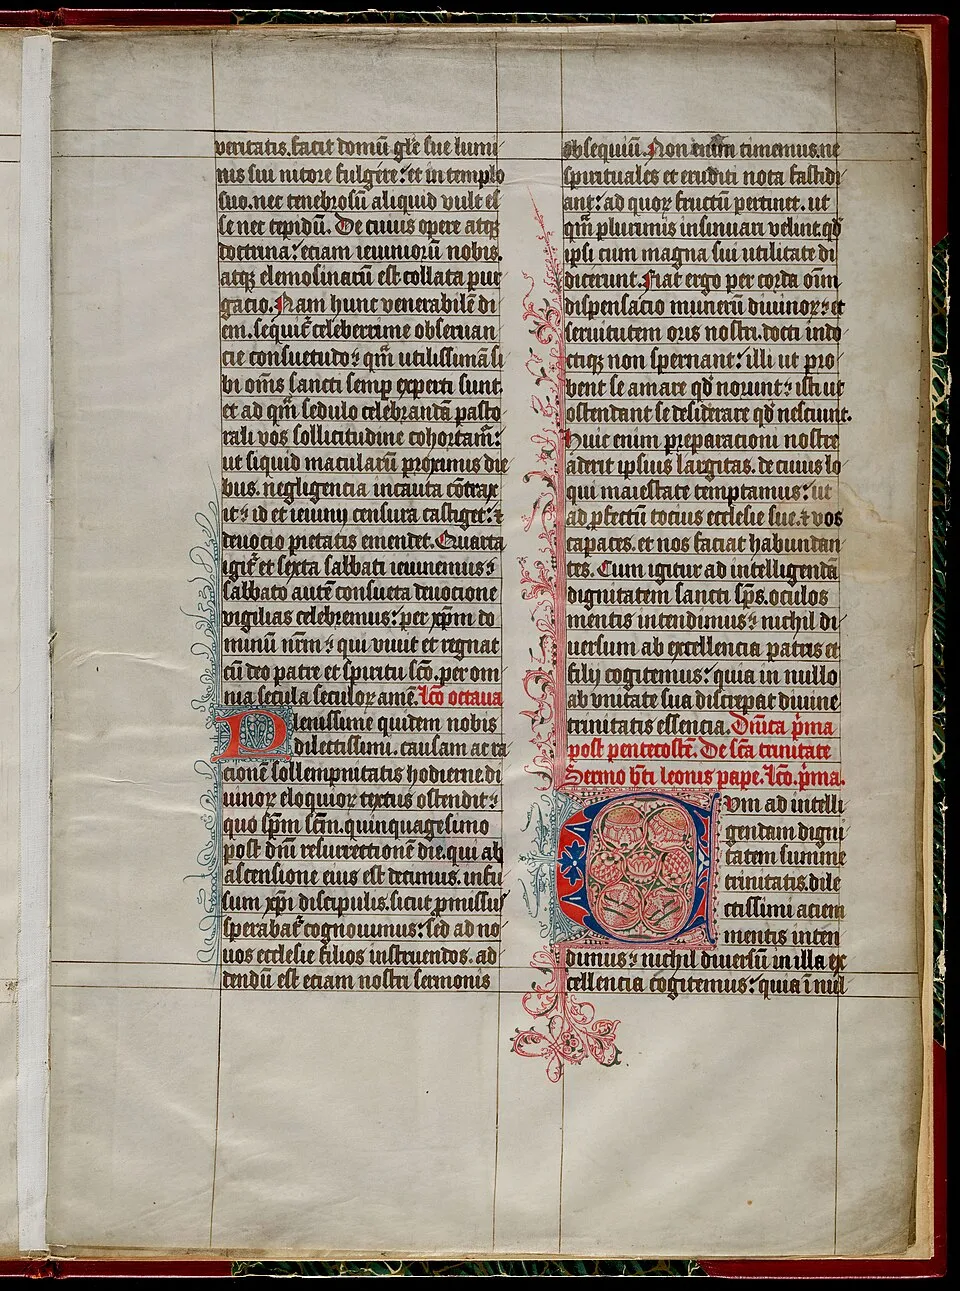 veritatis. facit domū gl̄e sue lumi
nis sui nitore fulgere: et in templo
suo. nec tenebrosū aliquid vult es
se nec tepidū. De cuius opere atq̄
doctrina: etiam ieiuniorū nobis.
atq̄ elemosinarū est collata pur
gacio. Nam hunc venerabilē di
em. sequit̄ celeberrime obseruan
cie consuetudo: qm̄ utilissimā si
bi om̄s sancti semp experti sunt.
et ad qm̄ sedulo celebrandā pasto
rali vos sollicitudine cohortam̄:
ut siquid macularū proximus die
bus. negligencia incauta cōtrax
it: id et ieiunij censura castiget: ⁊
deuocio pietatis emendet. Quarta
igit̄ et sexta sabbati ieiunemus:
sabbato autē consueta deuocione
vigilias celebremus: per xp̄m do
minū nr̄m: qui viuit et regnat
cū deo patre et spiritu sc̄o. per om
nia secula seculoꝝ amē. Lc̄o octaua
Plenissime quidem nobis
dilectissimi. causam ac ra
cionē sollempnitatis hodierne di
uinoꝝ eloquioꝝ textus ostendit:
quo sp̄m sc̄m. quinquagesimo
post dn̄i resurrectionē die. qui ab
ascensione eius est decimus. infu
sum xp̄i discipulis. sicut p̄missus
sperabat̄ cognouimus: sed ad no
uos ecclesie filios instruendos. ad
dendū est etiam nostri sermonis
obsequiū. Non enim timemus. ne
spirituales et eruditi nota fastidi
ant: ad quoꝝ fructū pertinet. ut
qm̄ plurimis insinuari velint. qd̄
ipsi cum magna sui utilitate di
dicerunt. Fiat ergo per corda om̄i
dispensacio munerū diuinoꝝ: et
seruitutem oris nostri. docti indo
ctiq̄ non spernant: illi ut pro
bent se amare qd̄ norunt: isti ut
ostendant se desiderare qd̄ nesciunt.
Huic enim preparacioni nostre
aderit ipsius largitas. de cuius lo
qui maiestate temptamus: ut
ad pfectū tocius ecclesie sue. ⁊ vos
capaces. et nos faciat habundan
tes. Cum igitur ad intelligendā
dignitatem sancti sp̄s. oculos
mentis intendimus: nichil di
uersum ab excellencia patris et
filij cogitemus: quia in nullo
ab vnitate sua discrepat diuine
trinitatis essencia. Dn̄ica p̄ma
post pentecostē. De sc̄a trinitate
Sermo bt̄i leonis pape. Lc̄o. p̄ma.
Cvm ad intelli
gendam digni
tatem summe
trinitatis. dile
ctissimi aciem
mentis inten
dimus: nichil diuersū in illa ex
cellencia cogitemus: quia ī nul